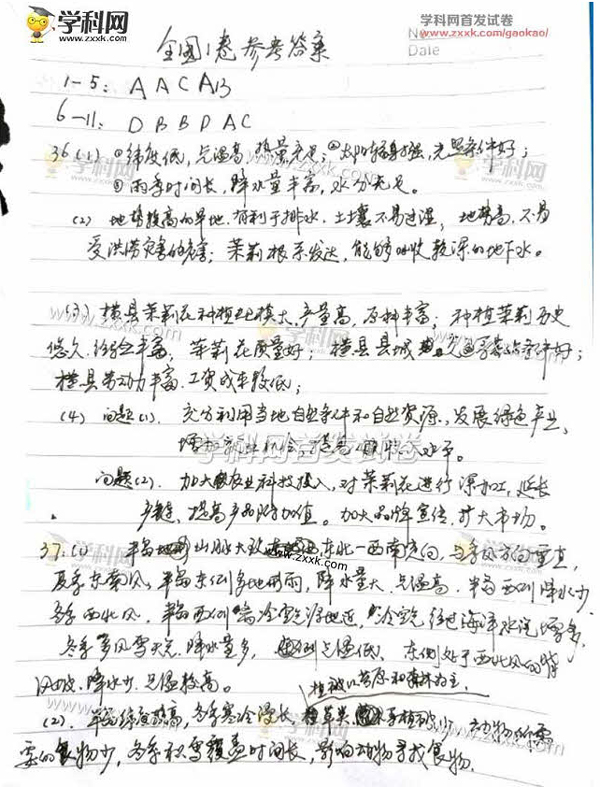 学科网
www.zxxk.com
学科网首发试卷
www.zxxk.com/gaokao/
Date
全国1卷参考答案
1-5: A A C A B
6-11: D B B D A C
36(1) ①纬度低,气温高,热量充足;②太阳辐射强,光照条件好;
③雨季时间长,降水量丰富,水分充足。
(2) 地势较高的旱地,有利于排水,土壤不易过湿;地势高,不易
受洪涝灾害的危害;茉莉根系发达,能够吸收较深的地下水。
(3) 横县茉莉花种植规模大,产量高,原料丰富;种植茉莉历史
悠久,经验丰富,茉莉花质量好;横县县城
横县劳动力丰富,工资成本较低;
(4) 问题(1). 充分利用当地自然条件和自然资源,发展绿色产业,
增加就业机会,提高
学科网首发试卷
问题(2). 加大农业科技投入,对茉莉花进行深加工,延长
产业链,提高产品附加值。加大品牌宣传,扩大市场。
37:(1) 半岛山脉大致东北—西南走向,与季风方向垂直,
夏季东南风,半岛东侧多地形雨,降水量大,气温高,半岛西侧降水少
冬季西北风,半岛西侧离冷空气源地近,冷空气经过海洋水汽增多,
冬季多风雪天气,降水量多,气温低、东侧处于西北风的背
风坡,降水少,气温较高。
植被以苔原和森林为主,
(2). 半岛纬度较高,冬季寒冷漫长,植被少,动物所需
要的食物少,冬季积雪覆盖时间长,影响动物寻找食物.